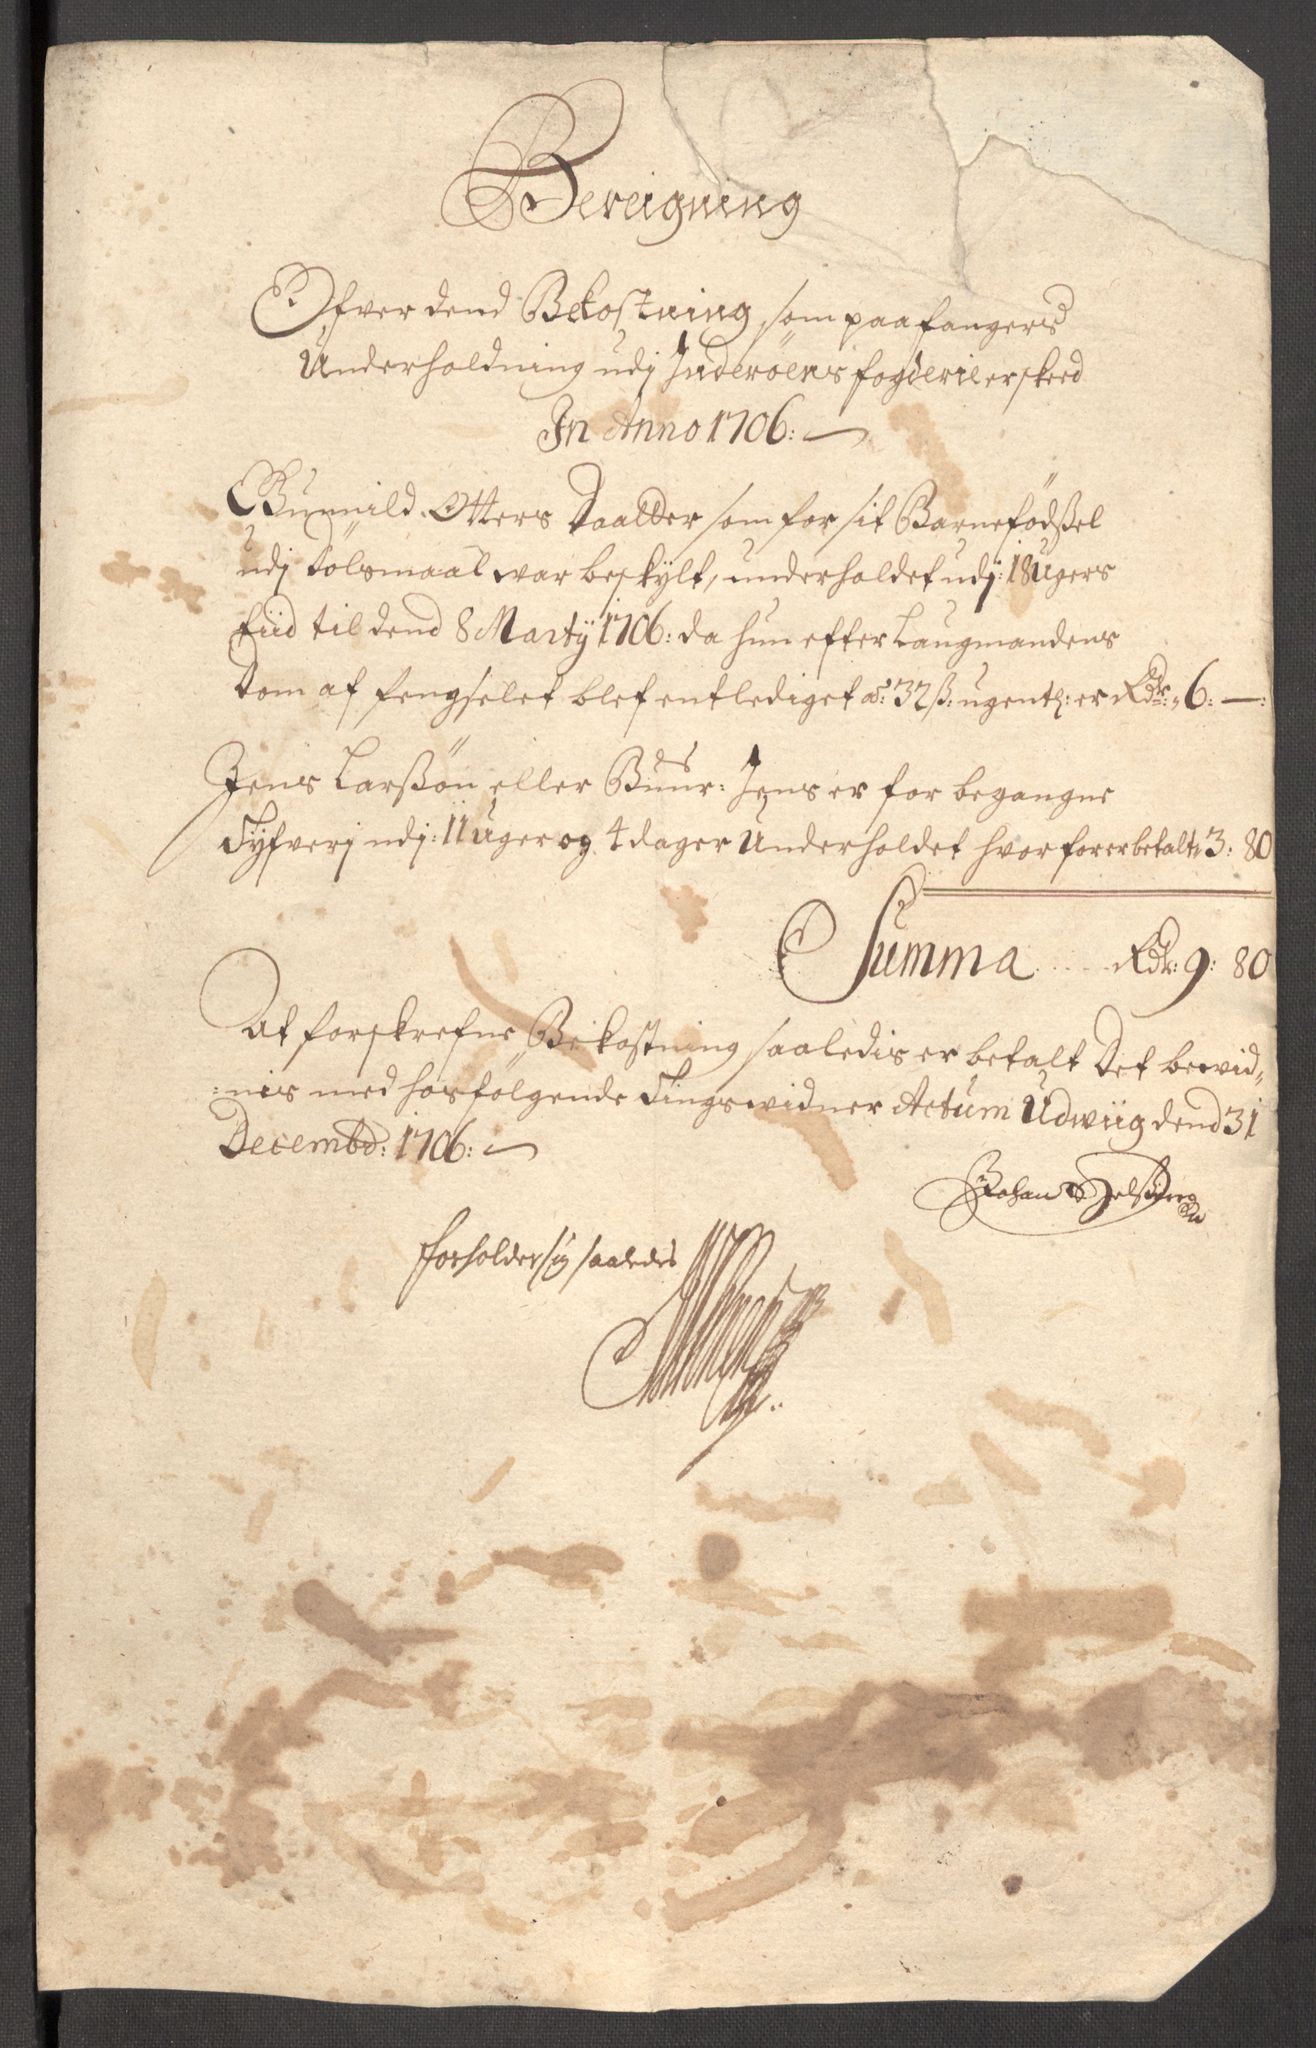 Bereigning
Ofver dend Bekostning, som paa fangers
Underholdning udj Inderöens fogderie er skeed
In Anno 1706:
Gunnild Otters Daatter som for sit Barnefödßel
udj dölsmaal war beskylt, underholdet udj: 18 Ugers
tiid til dend 8 Martÿ 1706: da hun efter Laugmandens
Dom af fengselet blef entlediget a: 32 ß: ugentl: er Rdr: 6: —:
Jens Larßön eller Buur: Jens er for begangne
Tyfverj udj: 11 Uger og 4 dager Underholdet hvor for er betalt 3: 80
Summa Rdr: 9: 80
At forskrefne Bekostning saaledis er betalt Det bewid„
:nis med hosfölgende Tingswidner Actum Udwiig dend 31
Decembr: 1706:
Johan
forholder sig saaledes